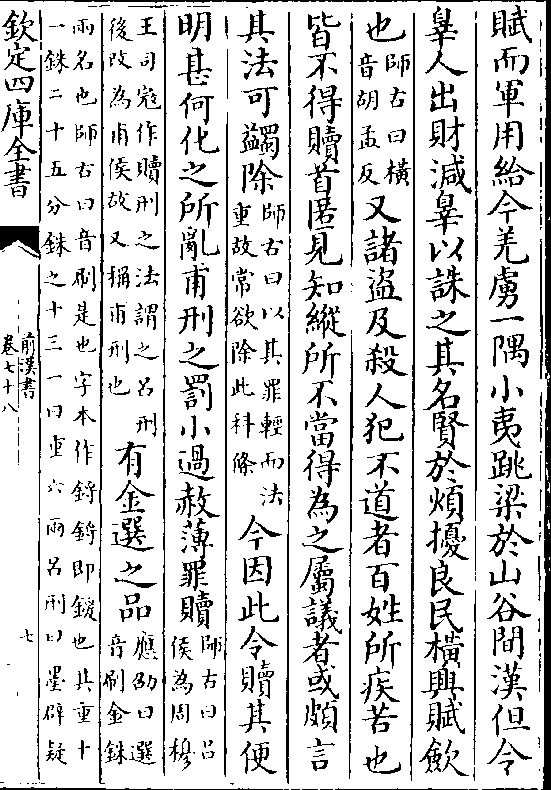 賦而軍用給今羌虜一隅小夷跳梁於山谷間漢但令
辠人出財減辠以誅之其名賢於煩擾良民橫興賦斂
也師古曰橫音胡孟反又諸盜及殺人犯不道者百姓所疾苦也
皆不得贖首匿見知縱所不當得為之屬議者或頗言
其法可蠲除師古曰以其罪輕而法重故常欲除此科條今因此令贖其便
明甚何化之所亂甫刑之罰小過赦薄罪贖師古曰呂侯為周穆
王司寇作贖刑之法謂之呂刑後改為甫侯故又稱甫刑也有金選之品應劭曰選音刷金銖
兩名也師古曰音刷是也字本作鋝鋝即鍰也其重十一銖二十五分銖之十三一曰重六兩呂刑曰墨辟疑
欽定四庫全書
前漢書
卷七十八
七